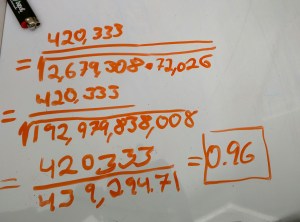 420,333
= √2,679,308•72,026
420,333
= √192,979,838,008
420333
= 439,294.71 = 0.96